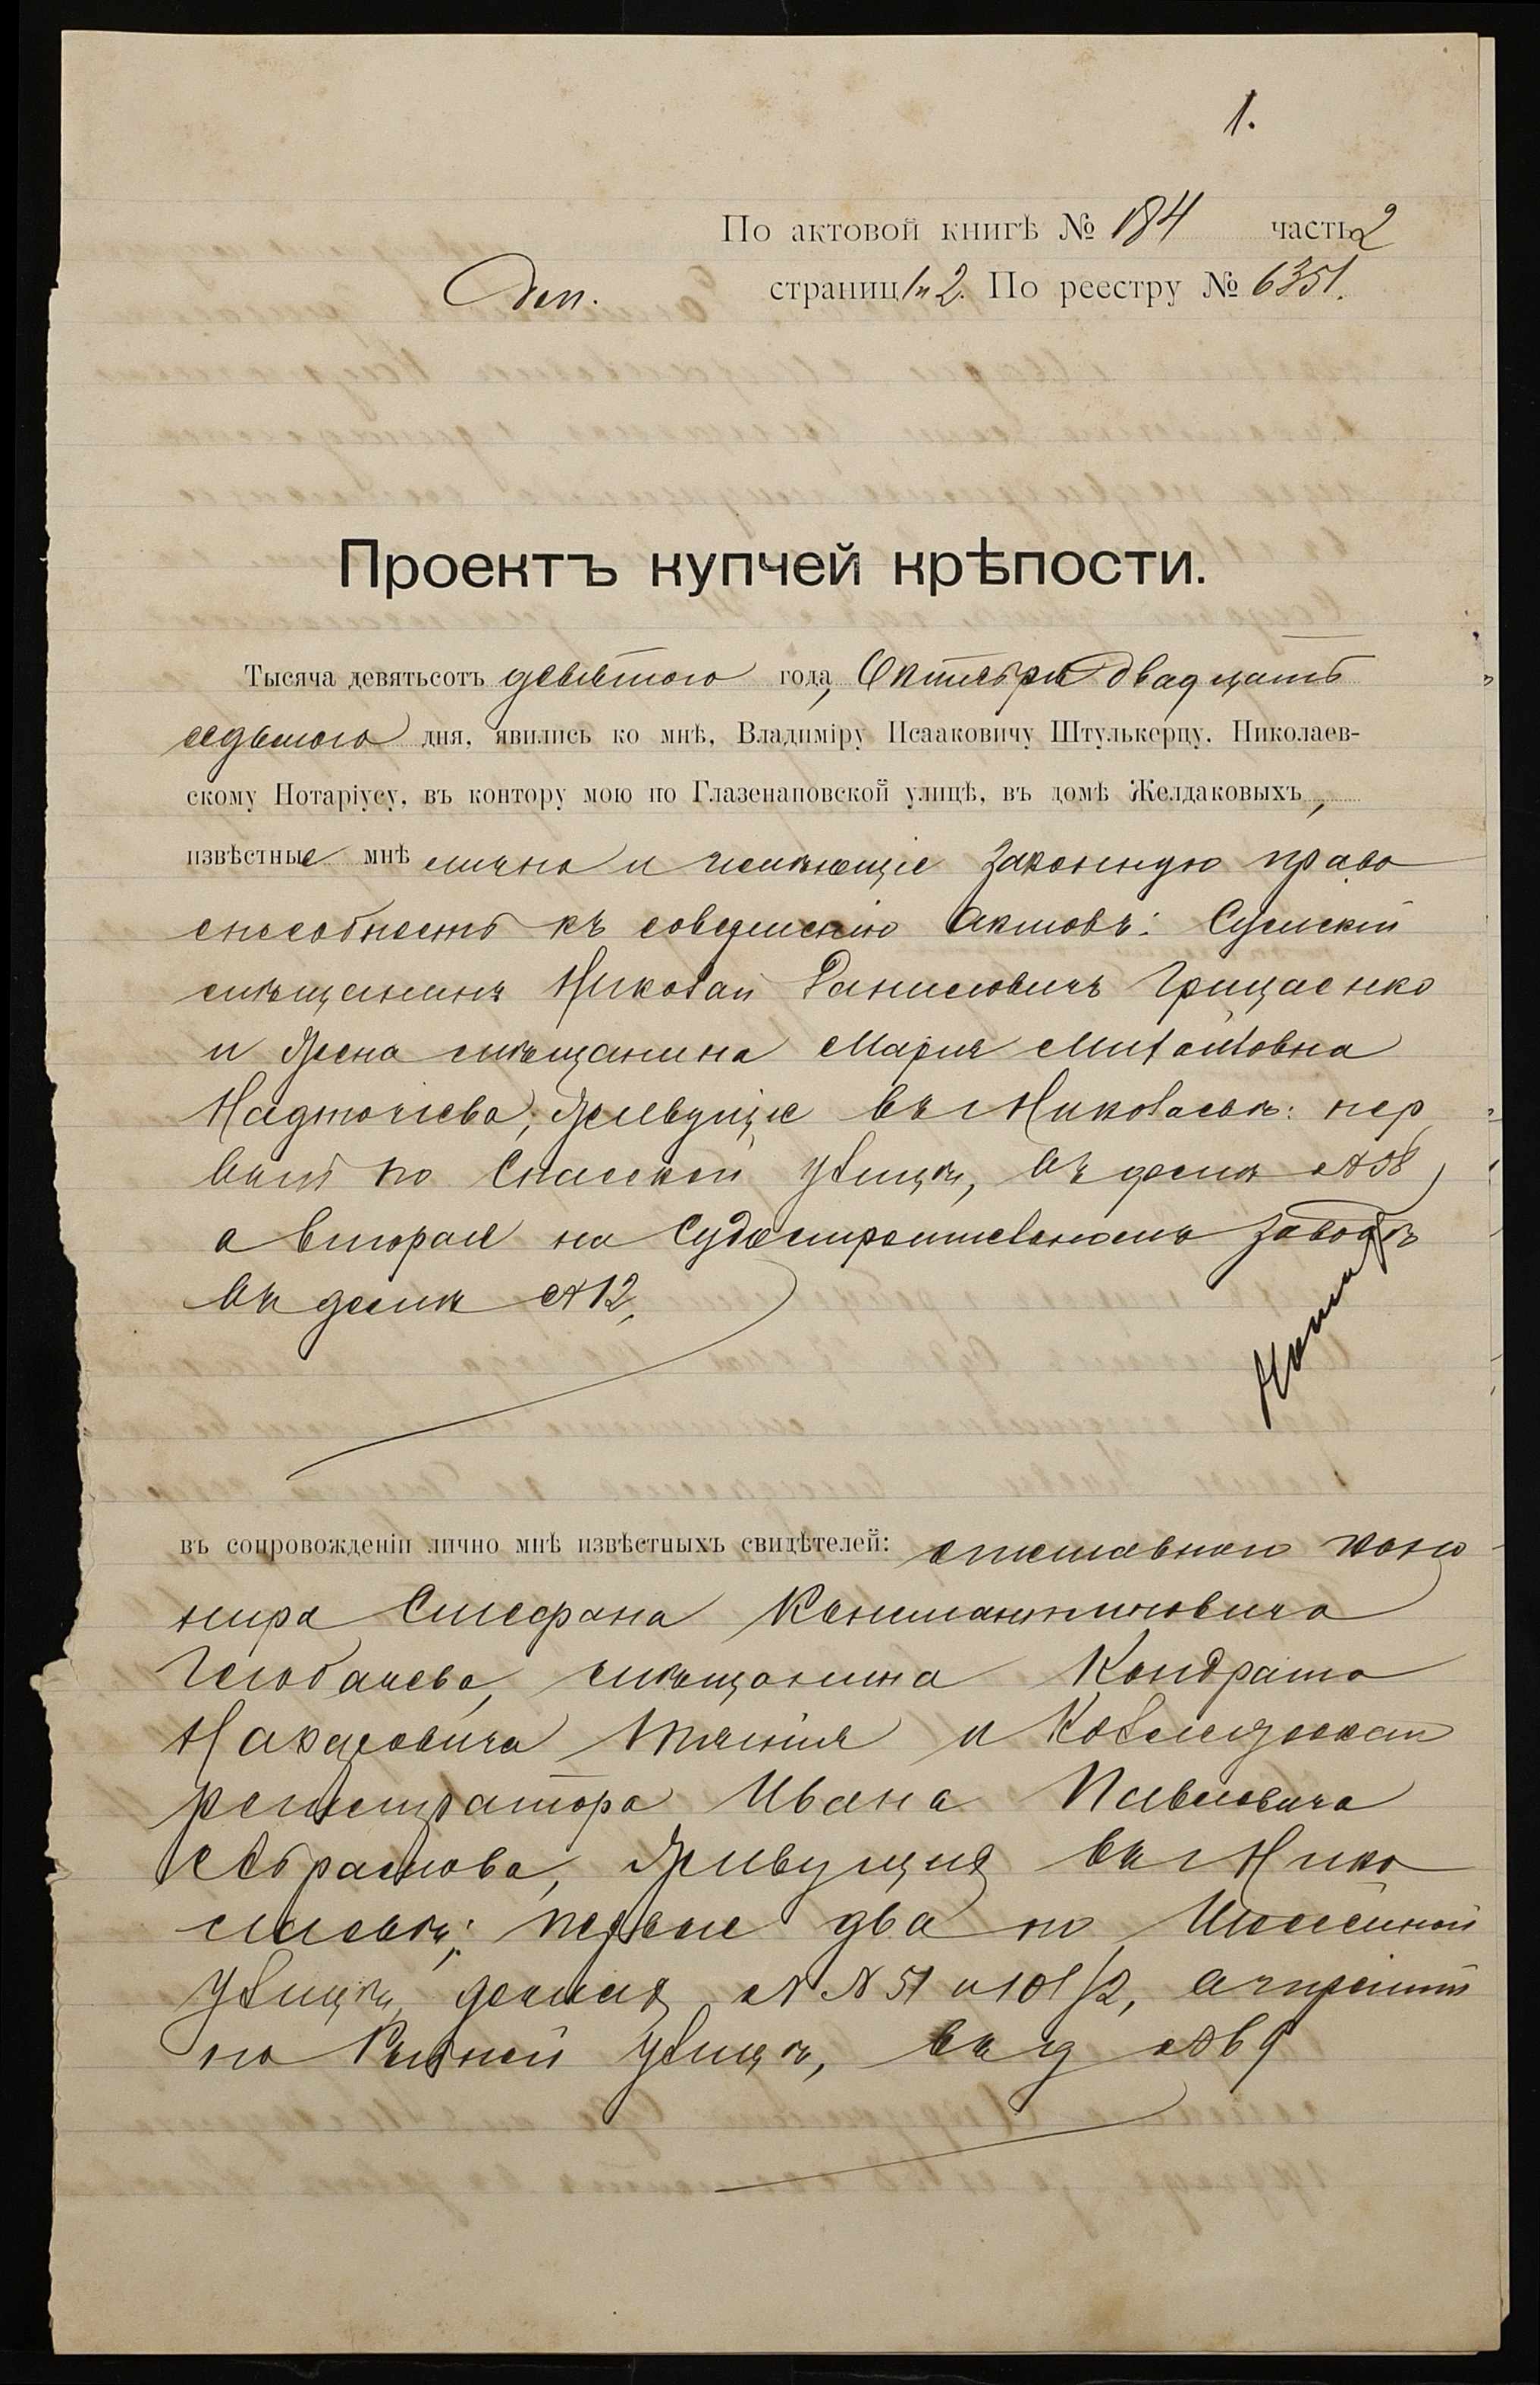 1.
По актовой книгѣ № 184 часть 2
Доп. страниц 1 и 2. По реестру № 6351.
Проектъ купчей крѣпости.
Тысяча девятьсотъ девятого года, Октября двадцать
седьмого дня, явились ко мнѣ, Владиміру Исааковичу Штулькерцу, Николаев-
скому Нотаріусу, въ контору мою по Глазенаповской улицѣ, въ домѣ Желдаковыхъ,
извѣстные мнѣ лично и имѣющіе законную право
способность къ совершенію актовъ: Сумскій
мѣщанинъ Николай Даниловичъ Грищаенко
и жена мѣщанина Марія Михайловна
Надточіева, живущіе въ Николаевѣ: пер
вый по Спасской улицѣ, въ домѣ № 58,
а вторая на Судостроительномъ заводѣ
въ домѣ № 12,
въ сопровожденіи лично мнѣ извѣстныхъ свидѣтелей: отставного
Стефана Константиновича
мѣщанина Кондрата
и Коллежскаго
регистратора Ивана Павловича
Абрамова, живущихъ въ Нико
лаевѣ: первые два по
улицѣ, домахъ № № 51 и 101/2, а третій
по Рыбной улицѣ, въ д № 69